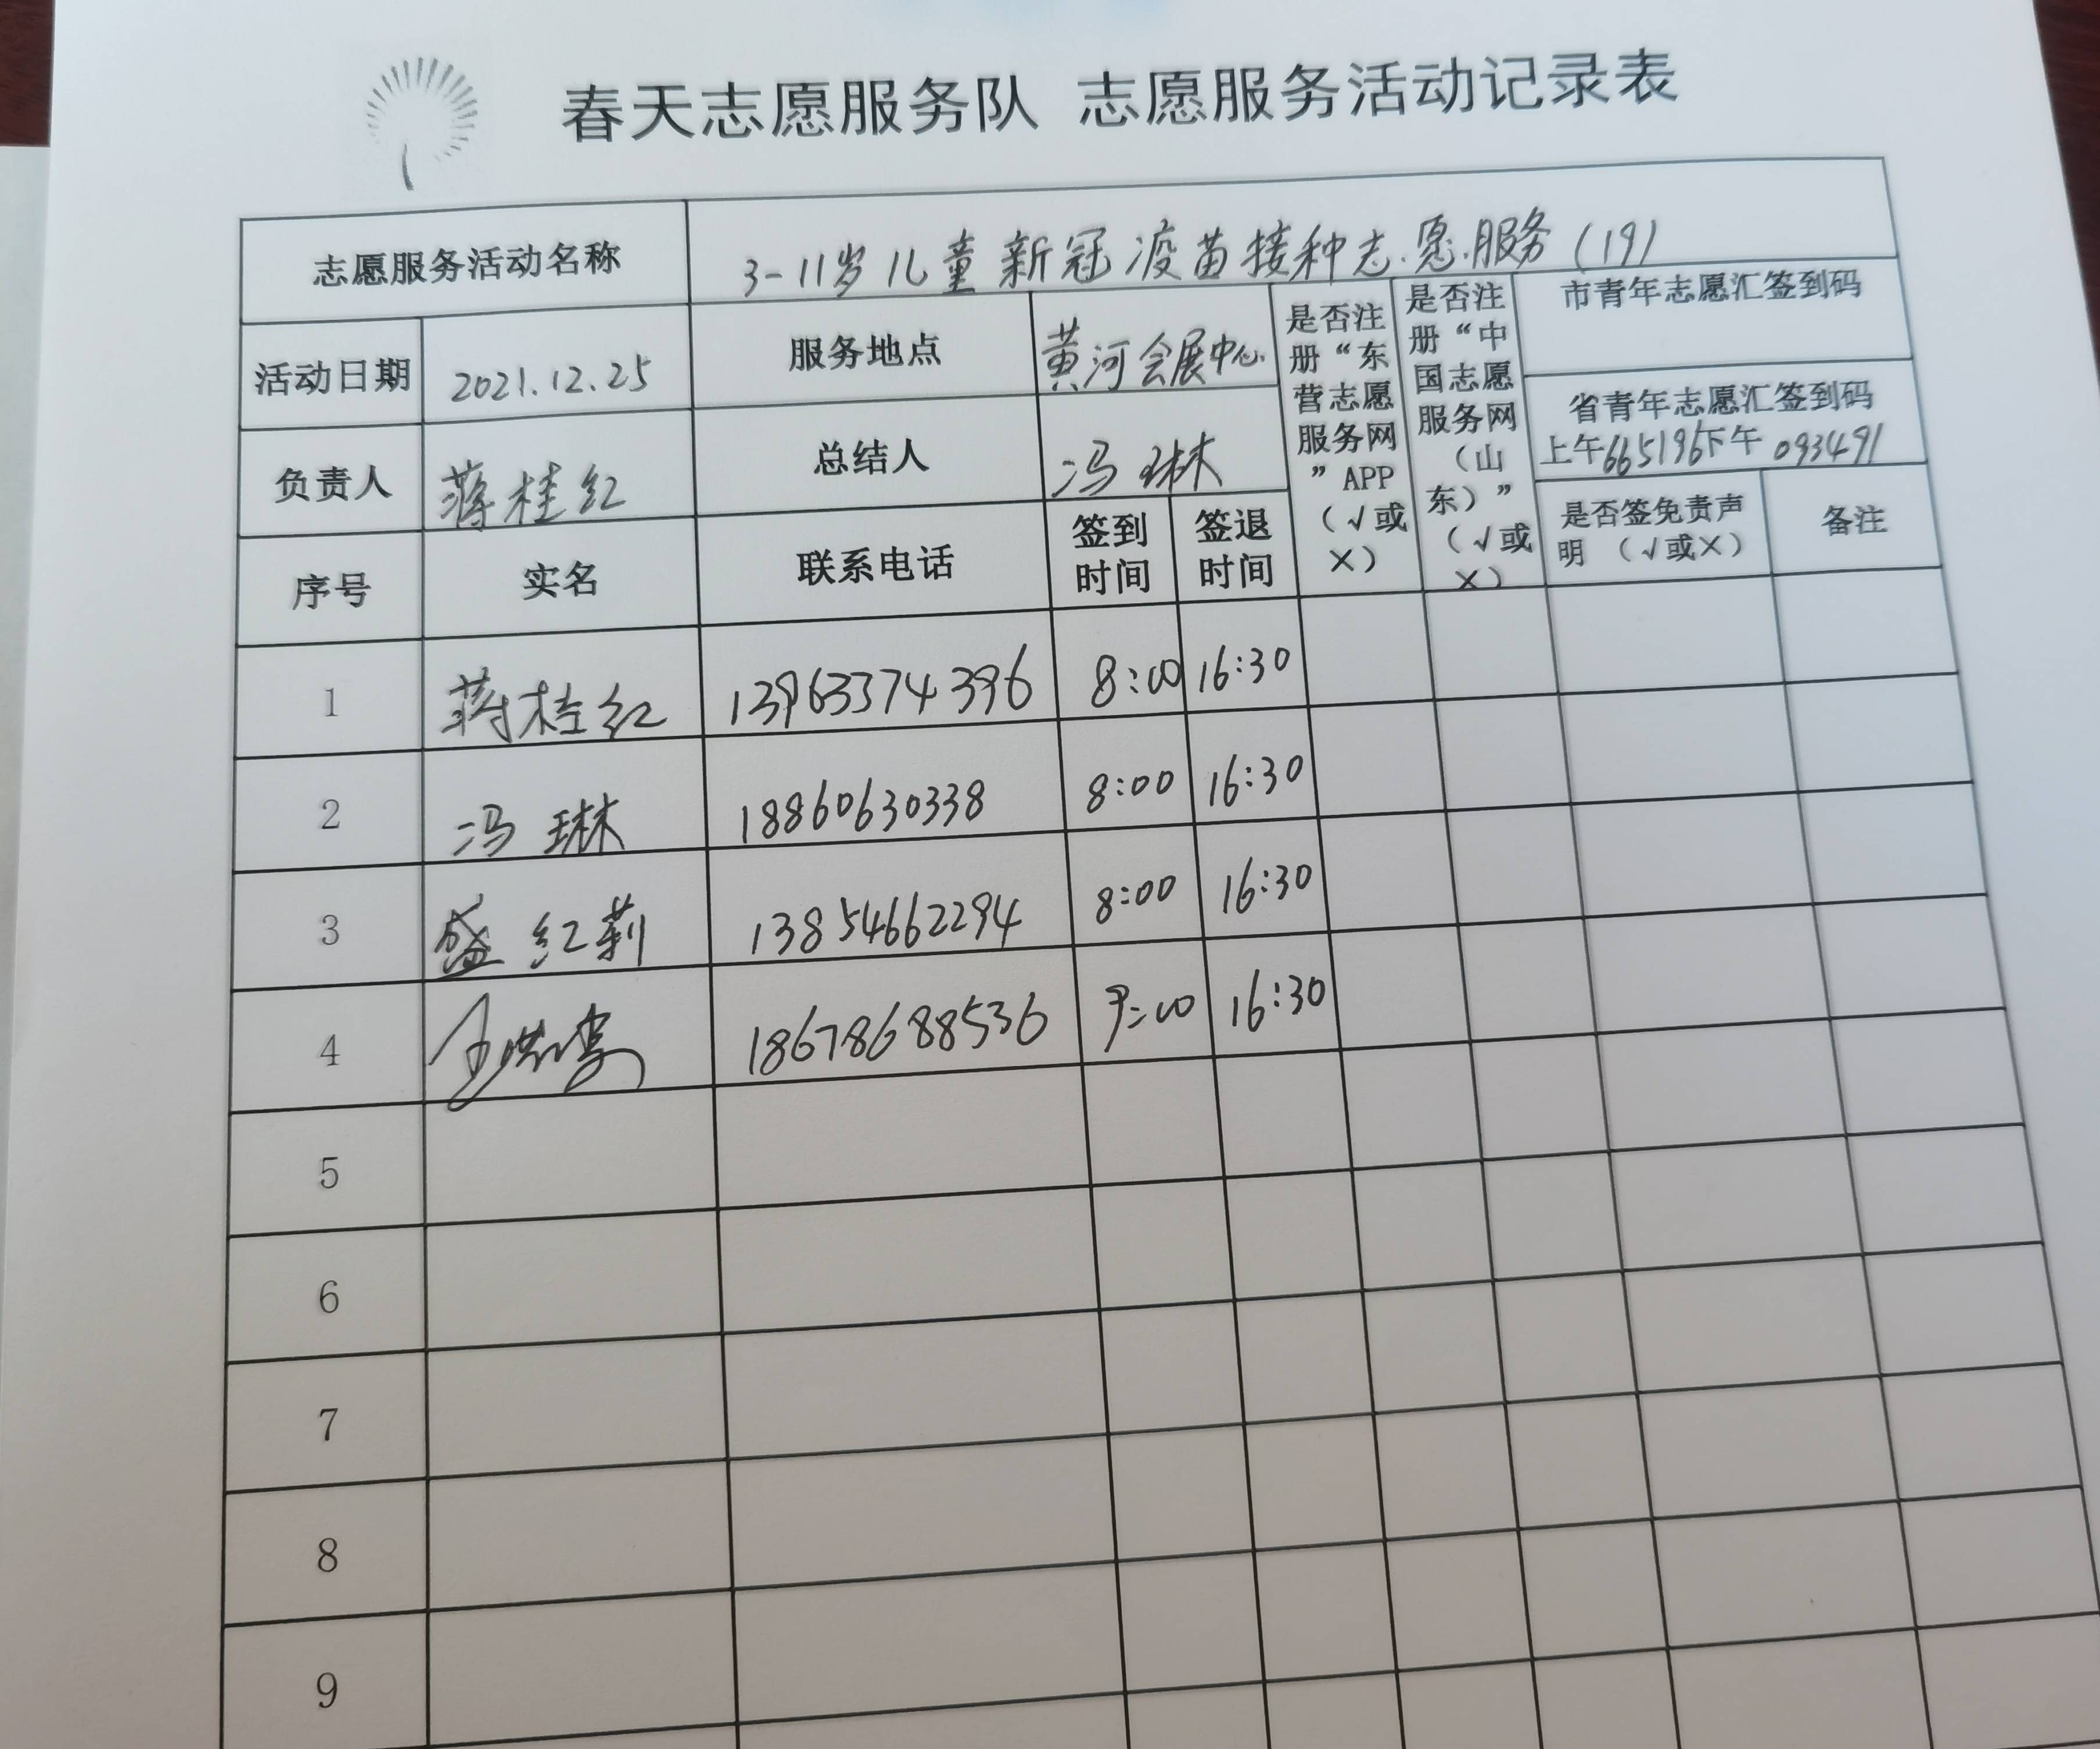 春天志愿服务队 志愿服务活动记录表
志愿服务活动名称 3-11岁儿童新冠疫苗接种志愿服务(19)
活动日期 2021.12.25 服务地点 黄河会展中心
是否注册“东营志愿服务网”APP（√或×）
是否注册“中国志愿服务网（山东）”（√或×）
市青年志愿汇签到码
省青年志愿汇签到码
上午665196下午093491
负责人 蒋桂红 总结人 冯琳
是否签免责声明（√或×） 备注
序号 实名 联系电话 签到时间 签退时间
1 蒋桂红 13963374396 8:00 16:30
2 冯琳 18860630338 8:00 16:30
3 盛红莉 13854662294 8:00 16:30
4 18678688536 16:30
5
6
7
8
9